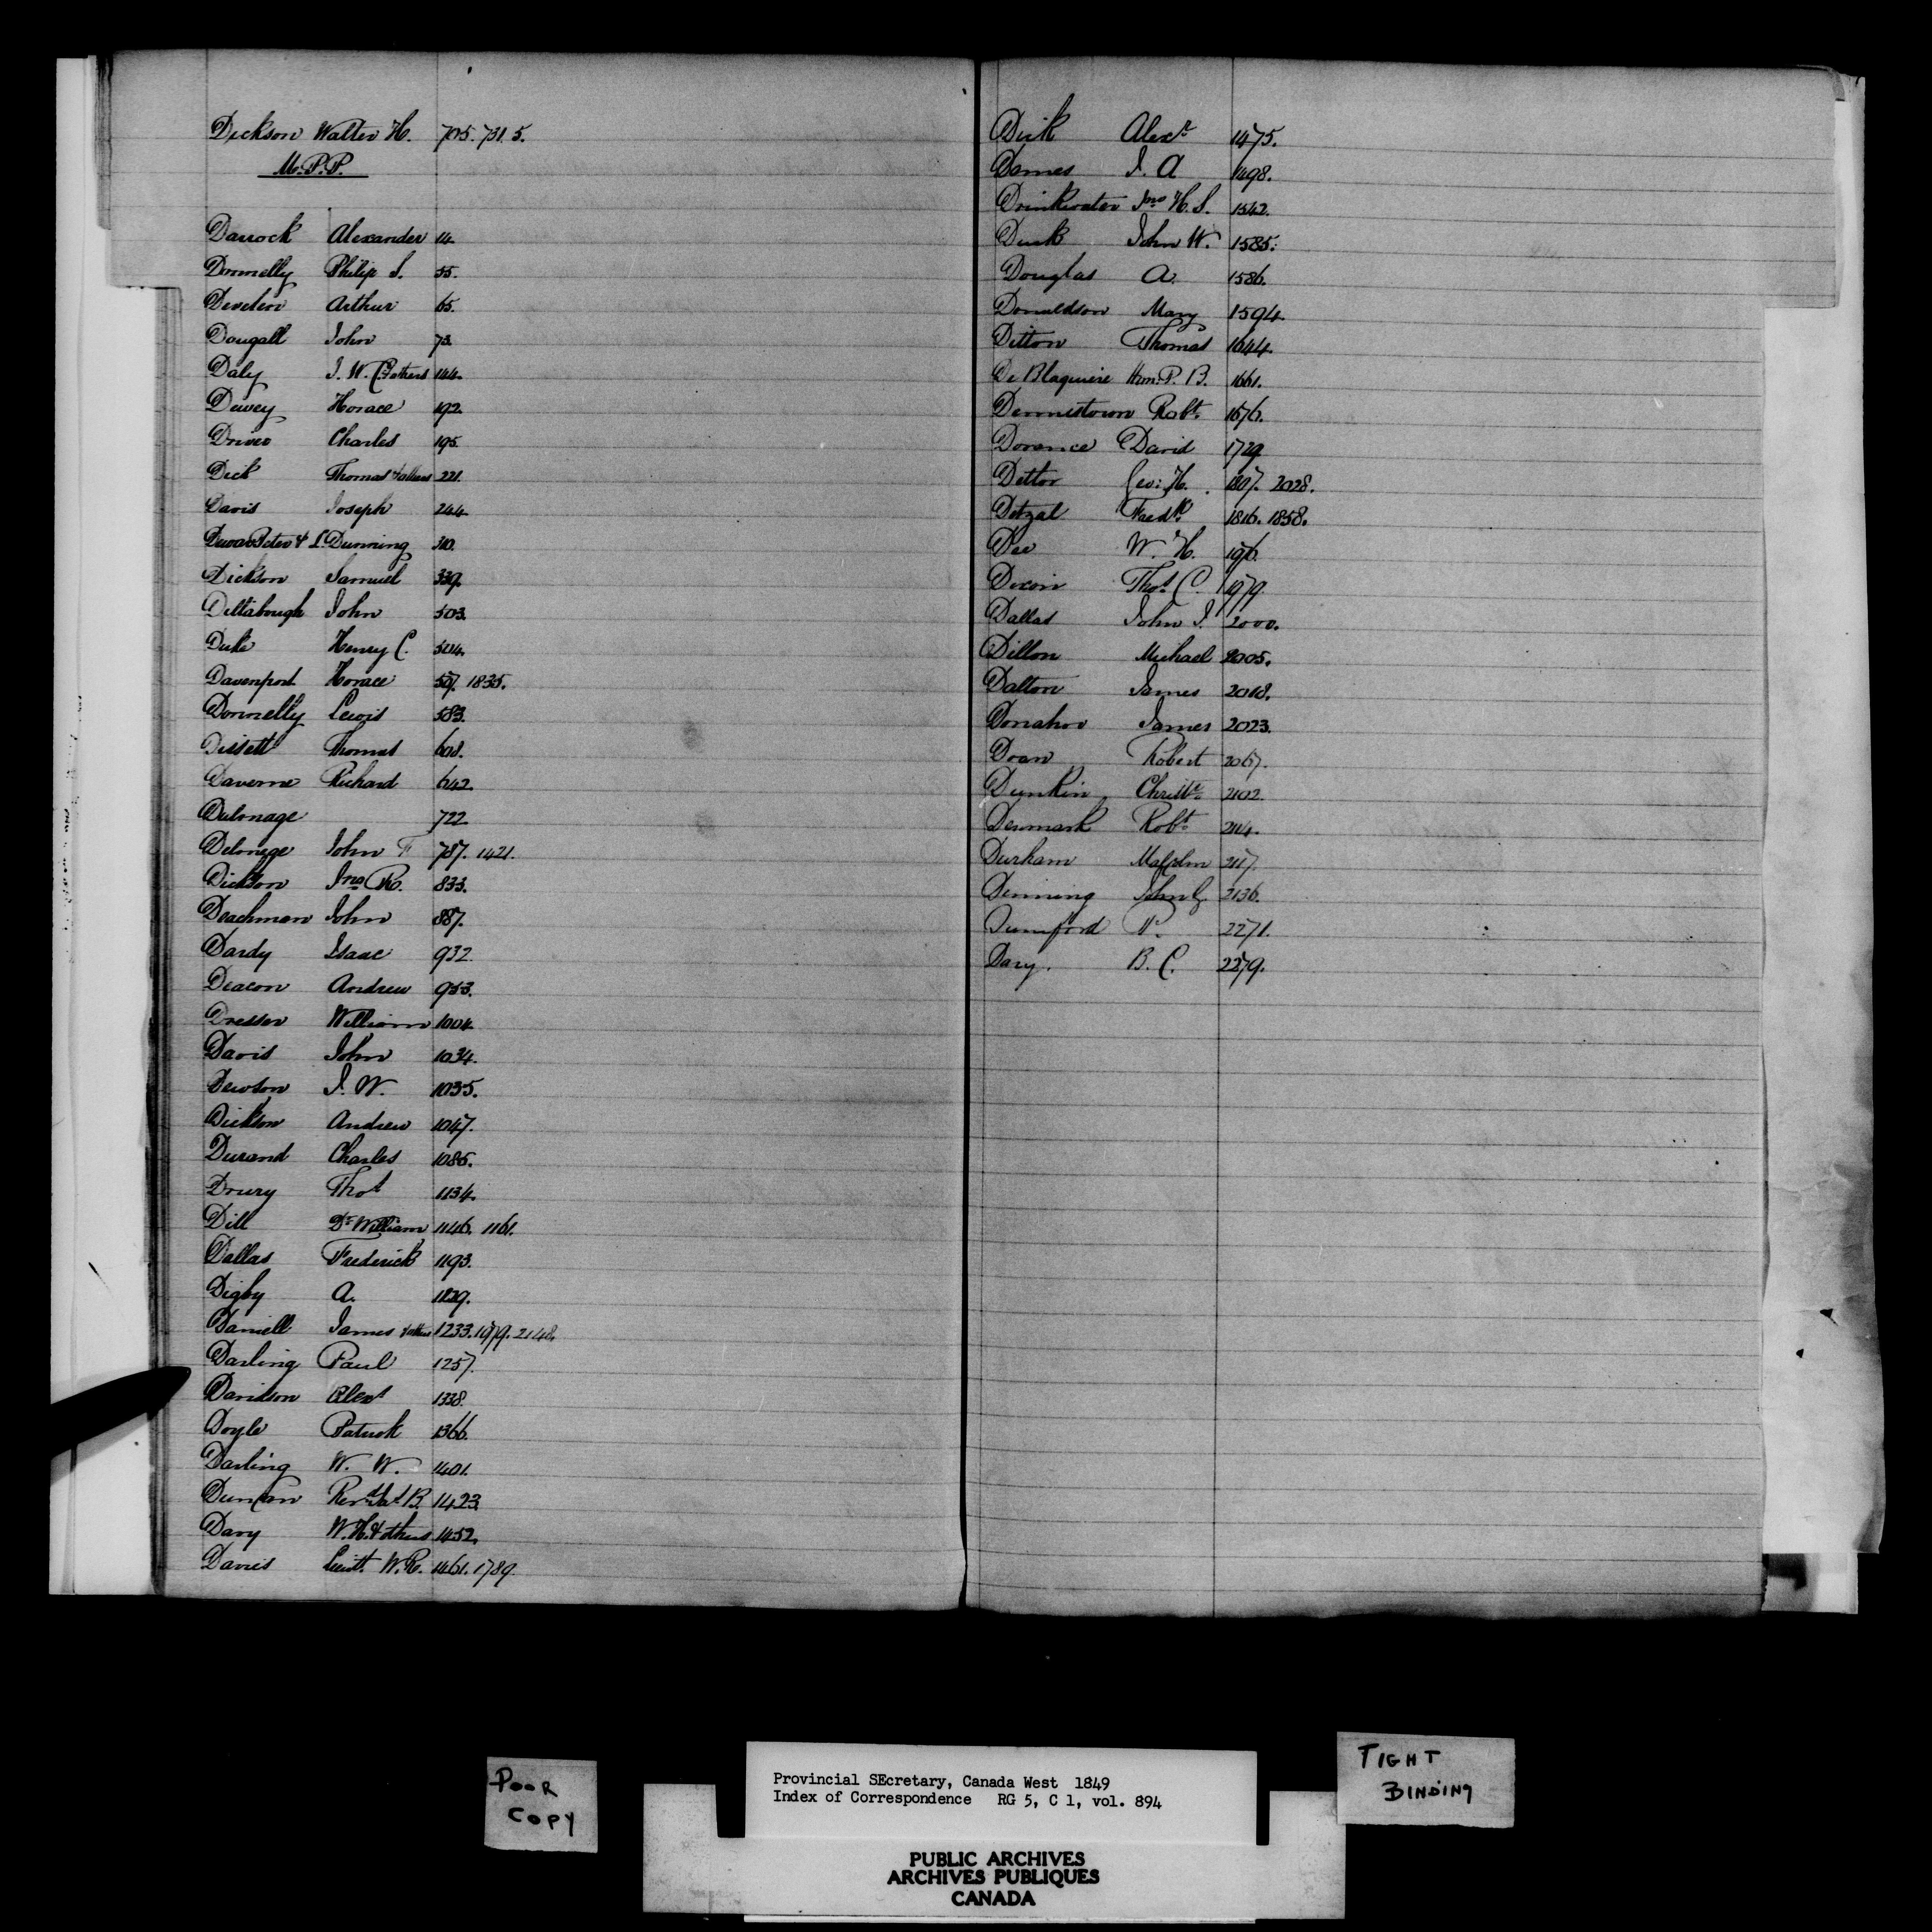 Dickson Walter H. 705. 731. 5.
M.P.P.
Darrock Alexander 14.
Donnelly Philip S. 55.
Develin Arthur 65.
Dougall John 73.
Daly J. W. & others 144.
Dewey Horace 192.
Driver Charles 195.
Dick Thomas & others 221.
Davis Joseph 244.
Dewar Peter & L. Dunning 310.
Dickson Samuel 339.
Dittabough John 503.
Duke Henry C. 504.
Davenport Horace 507. 1835.
Donnelly Lewis 583.
Dissett Thomas 608.
Daverne Richard 642.
Dulmage 722
Delmege John F 787. 1421.
Dickson Jno R. 833.
Deachman John 887.
Dardy Isaac 932.
Deacon Andrew 953.
Dresser William 1004.
Davis John 1034.
Dewson J. W. 1035.
Dickson Andrew 1047.
Durand Charles 1085.
Drury Thos 1134.
Dill Dr William 1146. 1161.
Dallas Frederick 1193.
Digby A.
Daniell James & others 1233. 1979. 2148.
Darling Paul 1257.
Davidson Alexr 1338.
Doyle Patrick 1366.
Darling W. W. 1401.
Duncan Revd Jas B. 1423.
Davy W. H. & others 1452.
Davies Lieutt. W. R. 1461. 1789.
Dick Alexr 1475.
Dames J. A 1498.
Drinkwater Jno H. S. 1542.
Dusk John W. 1585.
Douglas A. 1586.
Donaldson Mary 1594.
Ditton Thomas 1644.
De Blaquiere Hon. P. B. 1661.
Dennistown Robt. 1676.
Dorance David 1729
Dettor Geo: H. 1807. 2028.
Detzal Fredk. 1816. 1858.
Dee W. H. 1976.
Dixon Thos C. 1979.
Dallas John J. 2000.
Dillon Michael 2005.
Dalton James 2018.
Donahoe James 2023.
Doan Robert 2067.
Dunkin Christr 2102.
Denmark Robt 2114.
Durham Malcolm 2117.
Denning John G. 2136.
Dumford P. 2271.
Davy. B. C. 2279.
POOR
COPY
Provincial SEcretary, Canada West 1849
Index of Correspondence RG 5, C 1, vol. 894
TIGHT
BINDING
PUBLIC ARCHIVES
ARCHIVES PUBLIQUES
CANADA